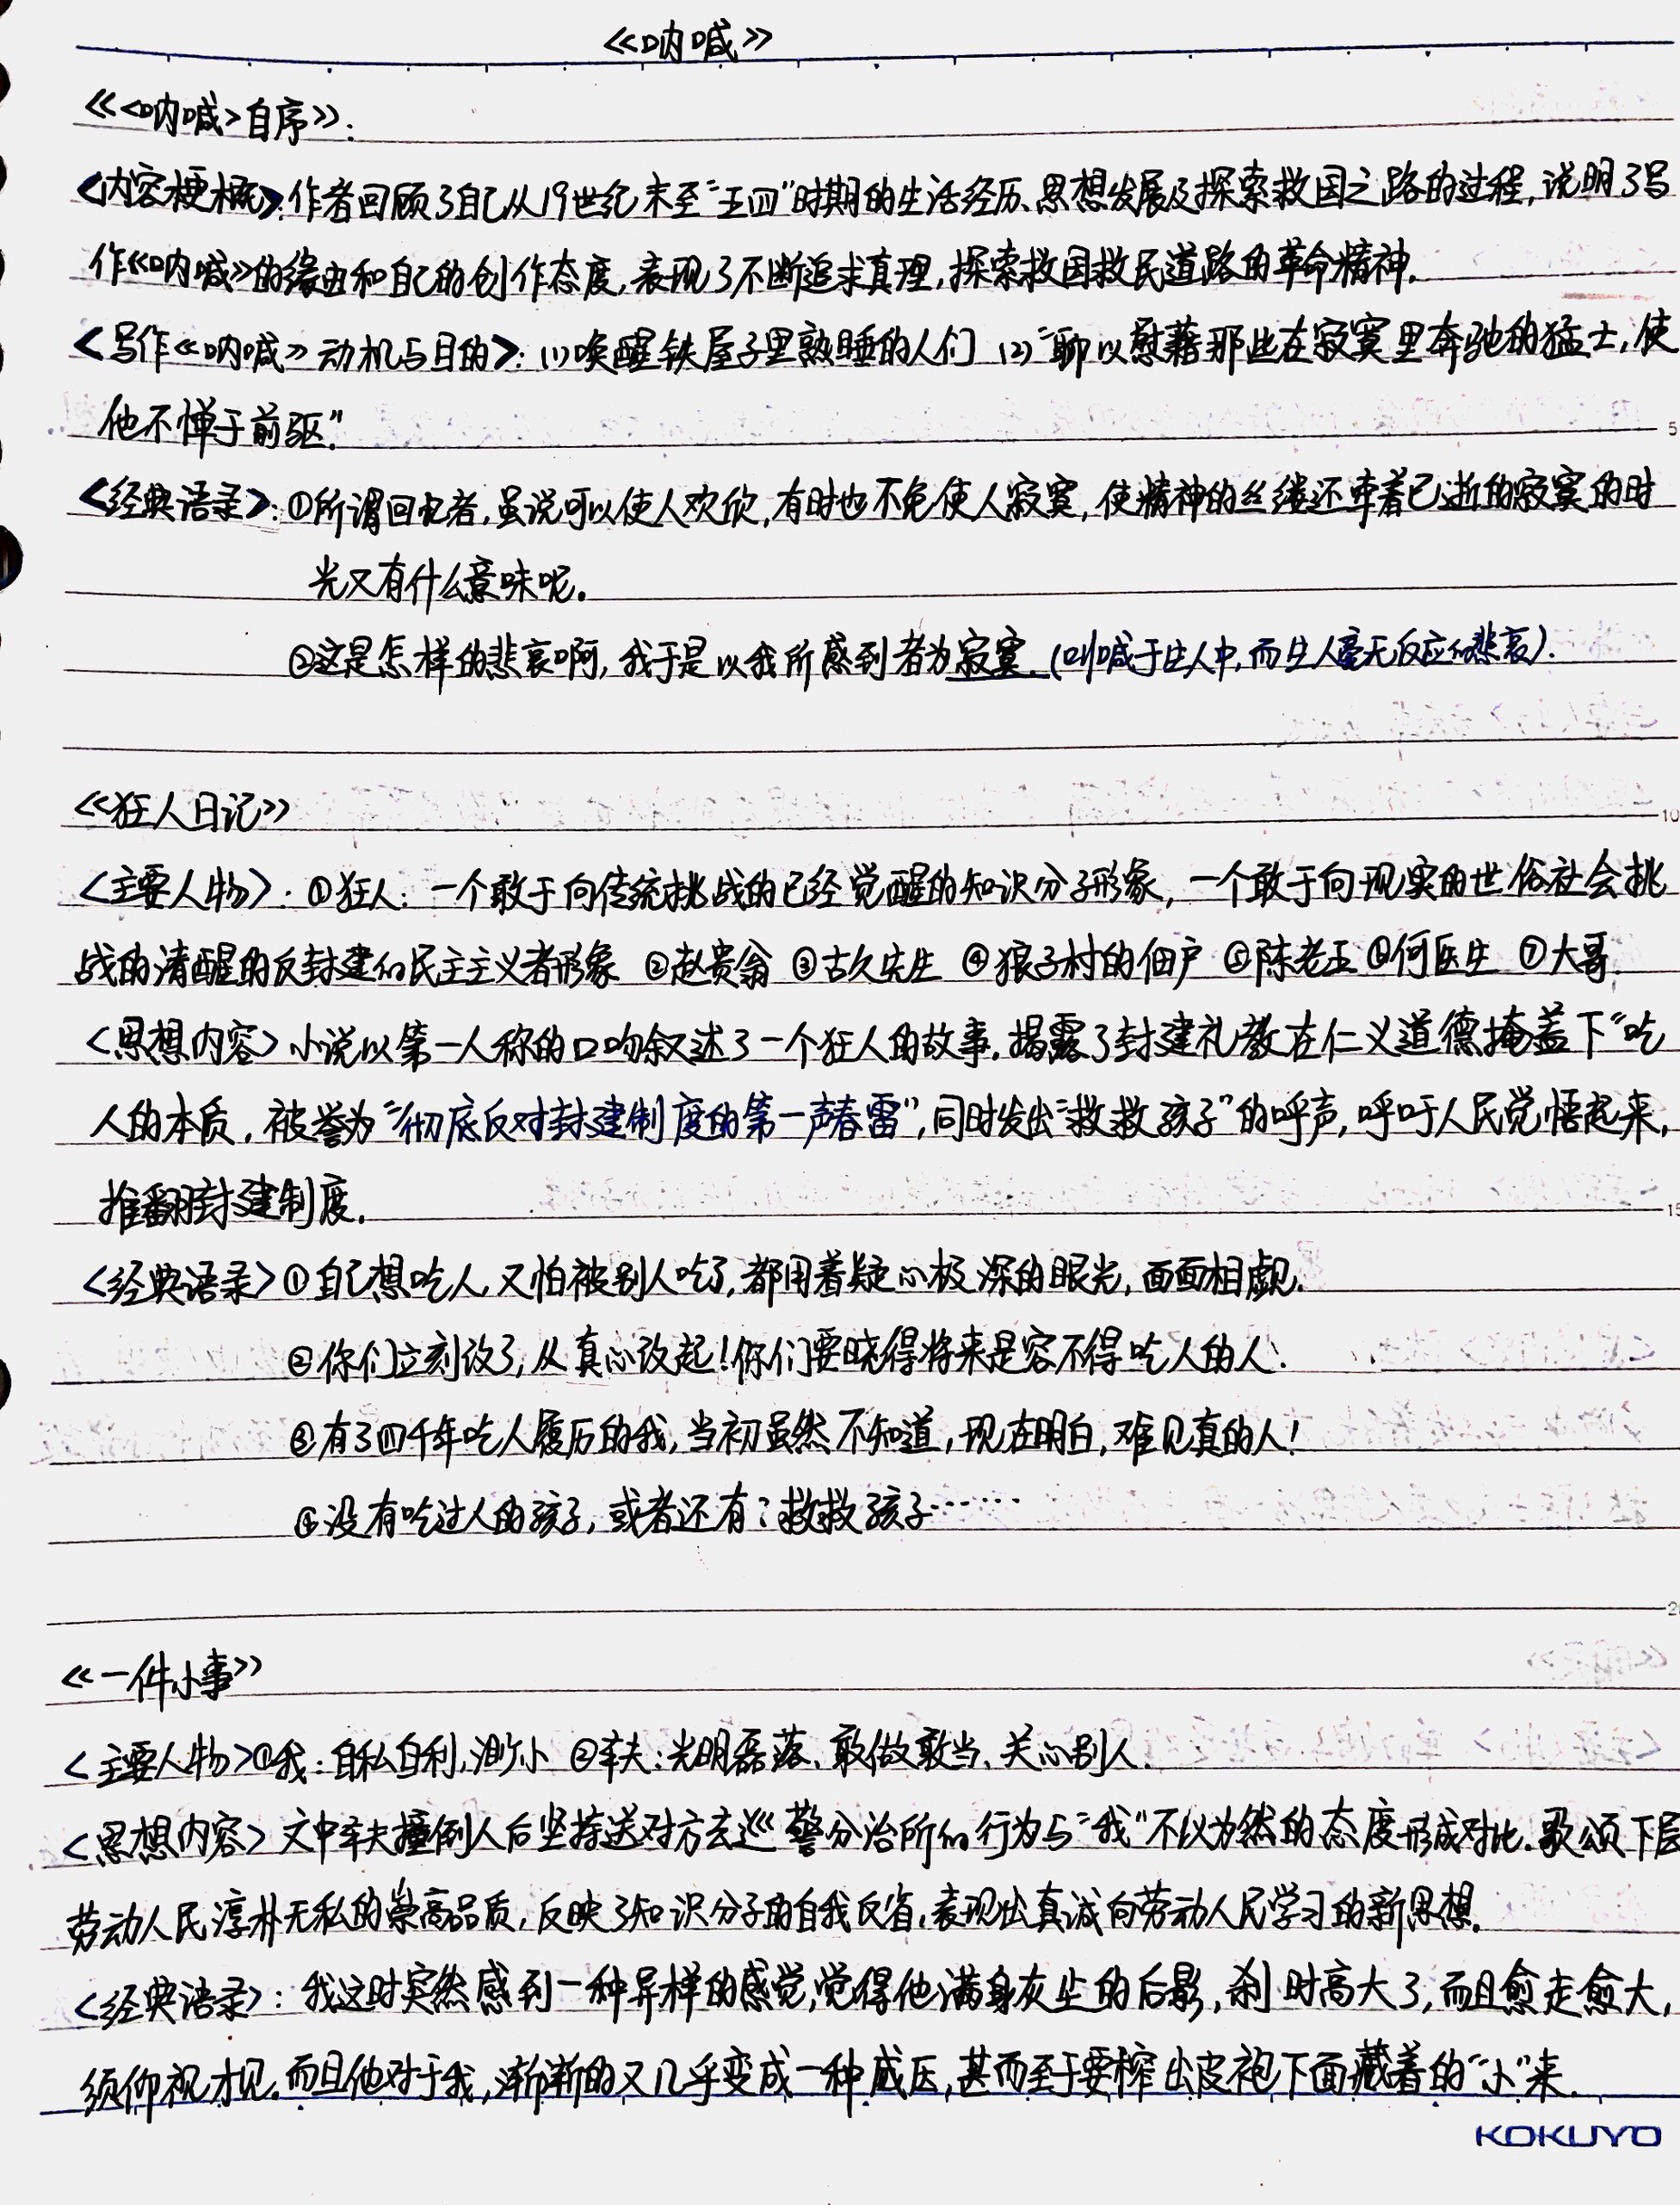 《呐喊》
《<呐喊>自序》:
<内容梗概>:作者回顾了自己从19世纪末至"五四"时期的生活经历、思想发展及探索救国之路的过程,说明了写
作《呐喊》的缘由和自己的创作态度,表现了不断追求真理,探索救国救民道路的革命精神.
<写作《呐喊》动机与目的>:(1)唤醒铁屋子里熟睡的人们 (2)"聊以慰藉那些在寂寞里奔驰的猛士,使
他不惮于前驱."
<经典语录>:①所谓回忆者,虽说可以使人欢欣,有时也不免使人寂寞,使精神的丝缕还牵着已逝的寂寞的时
光又有什么意味呢.
②这是怎样的悲哀啊,我于是以我所感到者为寂寞.(叫喊于生人中,而生人毫无反应的悲哀).
《狂人日记》
<主要人物>:①狂人:一个敢于向传统挑战的已经觉醒的知识分子形象,一个敢于向现实的世俗社会挑
战的清醒的反封建的民主主义者形象 ②赵贵翁 ③古久先生 ④狼子村的佃户 ⑤陈老五 ⑥何医生 ⑦大哥.
<思想内容>小说以第一人称的口吻叙述了一个狂人的故事.揭露了封建礼教在仁义道德掩盖下"吃
人的本质,被誉为"彻底反对封建制度的第一声春雷",同时发出"救救孩子"的呼声,呼吁人民觉悟起来,
推翻封建制度.
<经典语录>①自己想吃人,又怕被别人吃了,都用着疑心极深的眼光,面面相觑.
②你们立刻改了,从真心改起!你们要晓得将来是容不得吃人的人.
③有了四千年吃人履历的我,当初虽然不知道,现在明白,难见真的人!
④没有吃过人的孩子,或者还有?救救孩子……
《一件小事》
<主要人物>①我:自私自利,渺小 ②车夫:光明磊落、敢做敢当、关心别人.
<思想内容>文中车夫撞倒人后坚持送对方去巡警分治所的行为与"我"不以为然的态度形成对比.歌颂下层
劳动人民淳朴无私的崇高品质,反映了知识分子的自我反省,表现出真诚向劳动人民学习的新思想.
<经典语录>:我这时突然感到一种异样的感觉,觉得他满身灰尘的后影,刹时高大了,而且愈走愈大,
须仰视才见.而且他对于我,渐渐的又几乎变成一种威压,甚而至于要榨出皮袍下面藏着的"小"来.
KOKUYO